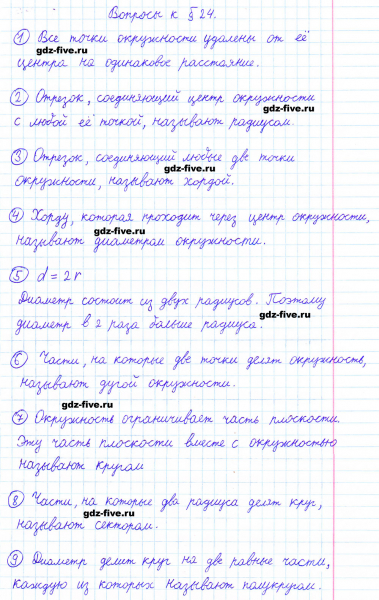 Вопросы к § 24.
① Все точки окружности удалены от её
gdz-five.ru
центра на одинаковое расстояние.
gdz-five.ru
② Отрезок, соединяющий центр окружности
gdz-five.ru
с любой её точкой, называют радиусом.
③ Отрезок, соединяющий любые две точки
gdz-five.ru
окружности, называют хордой.
④ Хорду, которая проходит через центр окружности,
gdz-five.ru
называют диаметром окружности.
⑤ d = 2r
Диаметр состоит из двух радиусов. Поэтому
gdz-five.ru
диаметр в 2 раза больше радиуса.
⑥ Части, на которые две точки делят окружность,
называют дугой окружности.
gdz-five.ru
⑦ Окружность ограничивает часть плоскости.
Эту часть плоскости вместе с окружностью
называют кругом
⑧ Части, на которые два радиуса делят круг,
gdz-five.ru
называют сектором.
⑨ Диаметр делит круг на две равные части,
gdz-five.ru
каждую из которых называют полукругом.